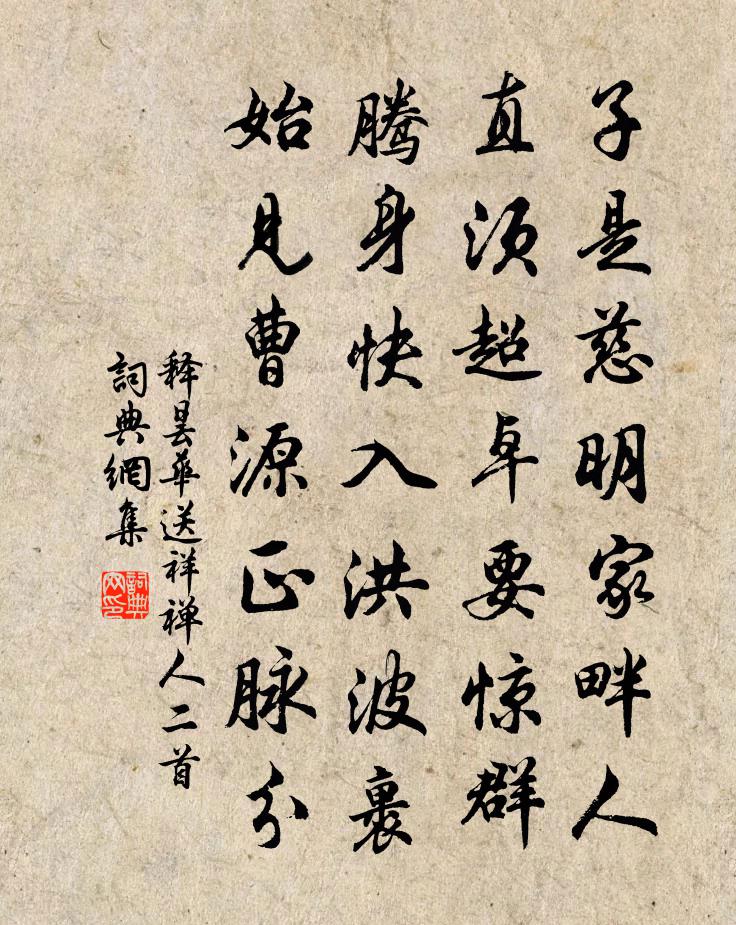 子是慈明家畔人
直须超卓要惊群
腾身快入洪波裹
始见曹源正脉分
释昙华送祥禅人二首
詞典網集
詞典网印